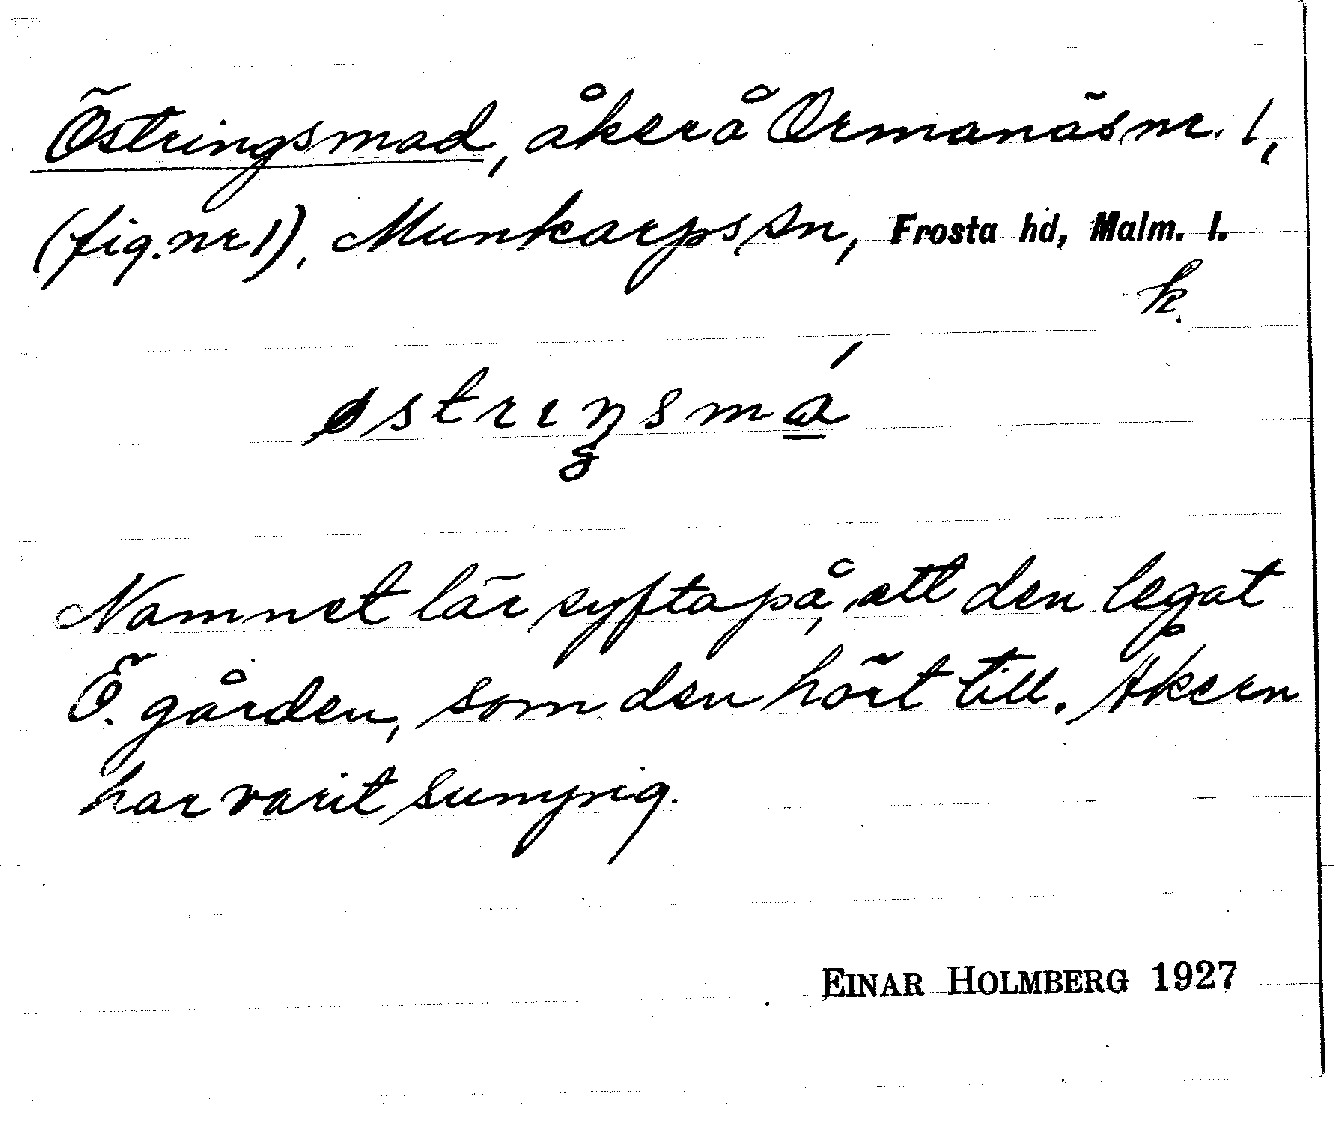 Östringsmad, åker å Ormanäs nr. 1,
(fig. nr 1), Munkarps sn, Frosta hd, Malm. l.
k.
østrıŋsmá
Namnet lär syfta på, att den legat
Ö. gården, som den hört till. Åkern
har varit sumprig.
EINAR HOLMBERG 1927